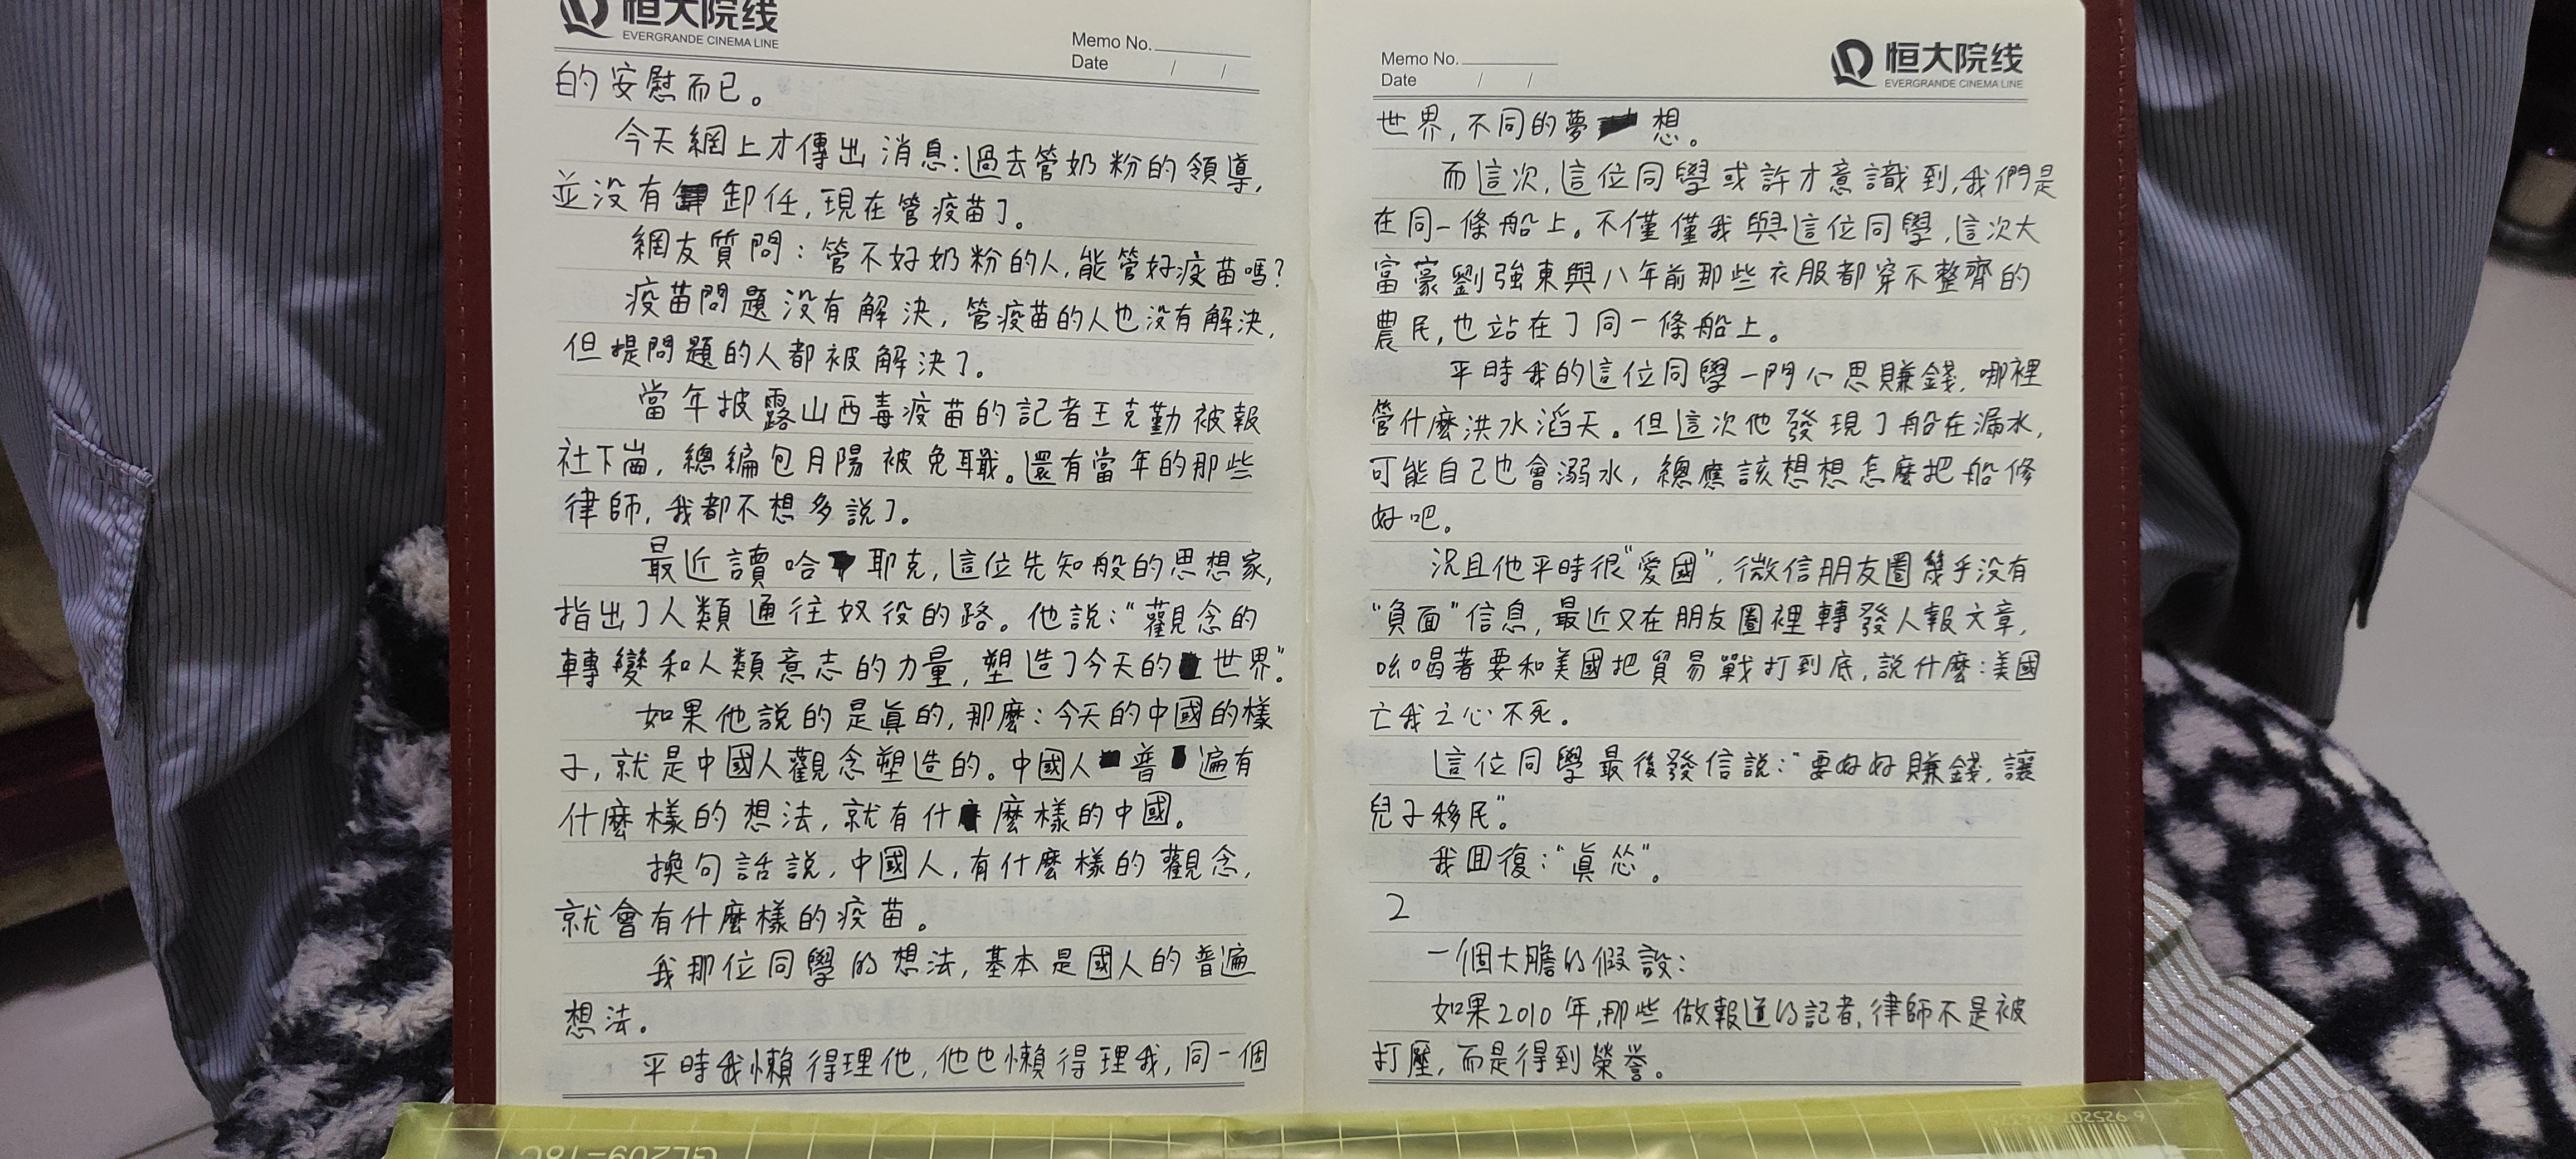 恒大院线
EVERGRANDE CINEMA LINE
Memo No.
Date / /
的安慰而已。
今天網上才傳出消息:過去管奶粉的領導,
並没有卸任,現在管疫苗了。
網友質問:管不好奶粉的人,能管好疫苗嗎?
疫苗問題没有解決,管疫苗的人也没有解決,
但提問題的人都被解決了。
當年披露山西毒疫苗的記者王克勤被報
社下崗,總編包月陽被免職。還有當年的那些
律師,我都不想多説了。
最近讀哈耶克,這位先知般的思想家,
指出了人類通往奴役的路。他説:"觀念的
轉變和人類意志的力量,塑造了今天的世界"。
如果他説的是真的,那麼:今天的中國的樣
子,就是中國人觀念塑造的。中國人普遍有
什麼樣的想法,就有什麼樣的中國。
換句話説,中國人,有什麼樣的觀念,
就會有什麼樣的疫苗。
我那位同學的想法,基本是國人的普遍
想法。
平時我懶得理他,他也懶得理我,同一個
Memo No.
Date / /
恒大院线
EVERGRANDE CINEMA LINE
世界,不同的夢想。
而這次,這位同學或許才意識到,我們是
在同一條船上。不僅僅我與這位同學,這次大
富豪劉強東與八年前那些衣服都穿不整齊的
農民,也站在了同一條船上。
平時我的這位同學一門心思賺錢,哪裡
管什麼洪水滔天。但這次他發現了船在漏水,
可能自己也會溺水,總應該想想怎麼把船修
好吧。
況且他平時很"愛國",微信朋友圈幾乎没有
"負面"信息,最近又在朋友圈裡轉發人報文章,
吆喝著要和美國把貿易戰打到底,説什麼:美國
亡我之心不死。
這位同學最後發信説:"要好好賺錢,讓
兒子移民"。
我回復:"真慫"。
2
一個大膽的假設:
如果2010年,那些做報道的記者,律師不是被
打壓,而是得到榮譽。
GL209-18C